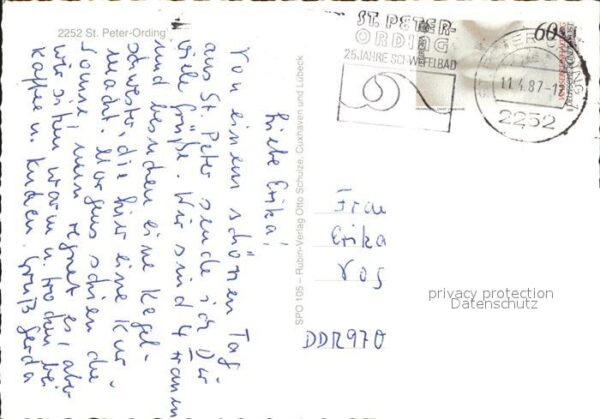 2252 St. Peter-Ording
Liebe Erika!
Von einem schönen Tag
aus St. Peter sende ich Dir
viele Grüße. Wir sind 4 Frauen
und besuchen eine Kegel-
schwester, die hier eine Kur
macht. Morgens schien die
Sonne, nun regnet es, aber
wir sitzen warm u. trocken bei
Kaffee u. Kuchen. Gruß Gerda
SPO 105 – Rubin-Verlag Otto Schulze, Cuxhaven und Lübeck
ST. PETER-
ORDING
25 JAHRE SCHWEFELBAD
60
11.4.87-12
2252
Frau
Erika
Vos
DDR 970
privacy protection
Datenschutz